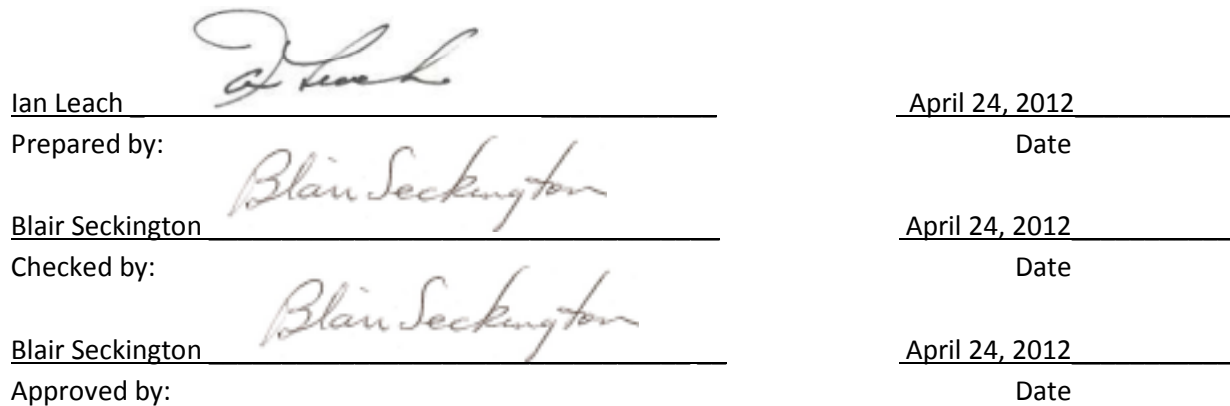 Ian Leach Ian Leach April 24, 2012
Prepared by: Date
Blair Seckington Blair Seckington April 24, 2012
Checked by: Date
Blair Seckington Blair Seckington April 24, 2012
Approved by: Date